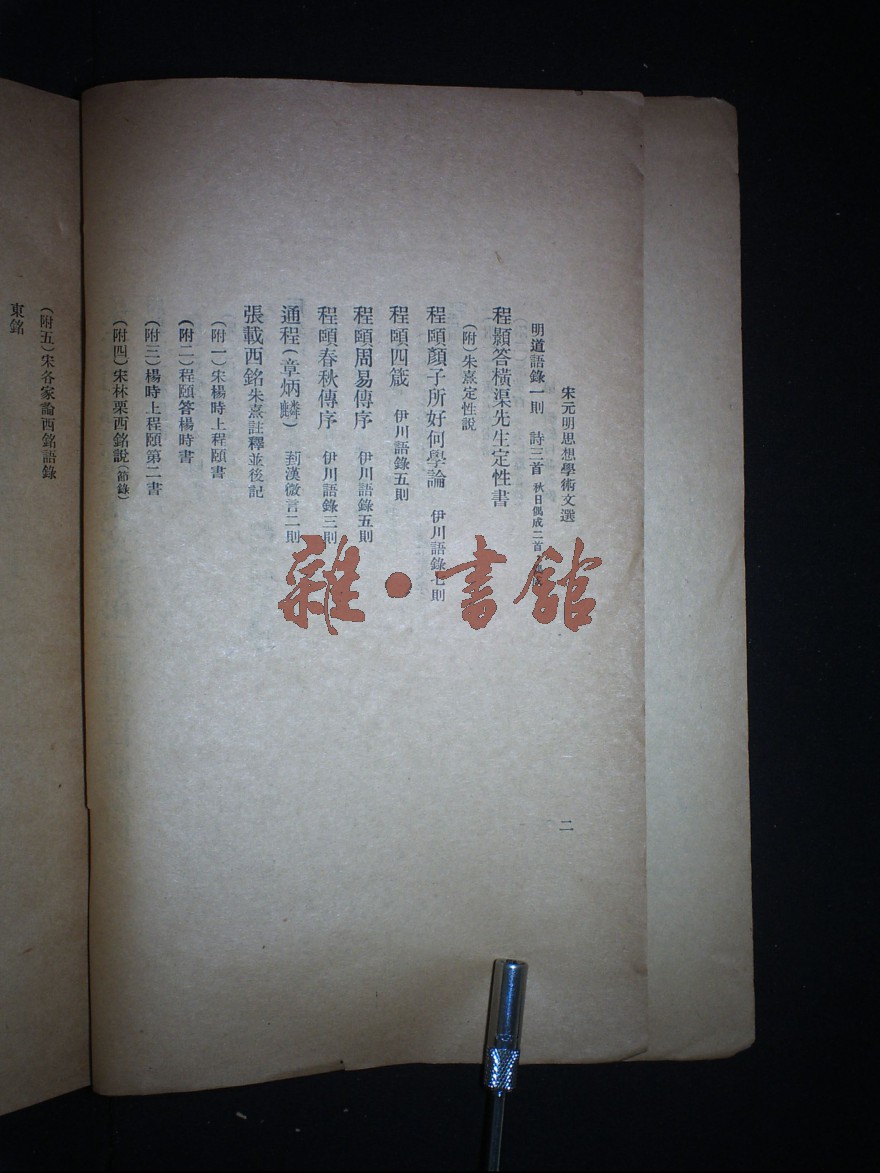 宋元明思想學術文選
二
明道語錄一則　詩三首　秋日偶成二首
程顥答橫渠先生定性書
（附）朱熹定性說
程頤顏子所好何學論　伊川語錄七則
程頤四箴　伊川語錄五則
程頤周易傳序　伊川語錄五則
程頤春秋傳序　伊川語錄三則
通程（章炳麟）　菿漢微言二則
張載西銘朱熹註釋並後記
（附一）宋楊時上程頤書
（附二）程頤答楊時書
（附三）楊時上程頤第二書
（附四）宋林栗西銘說（節錄）
（附五）宋各家論西銘語錄
東銘
雜·書館